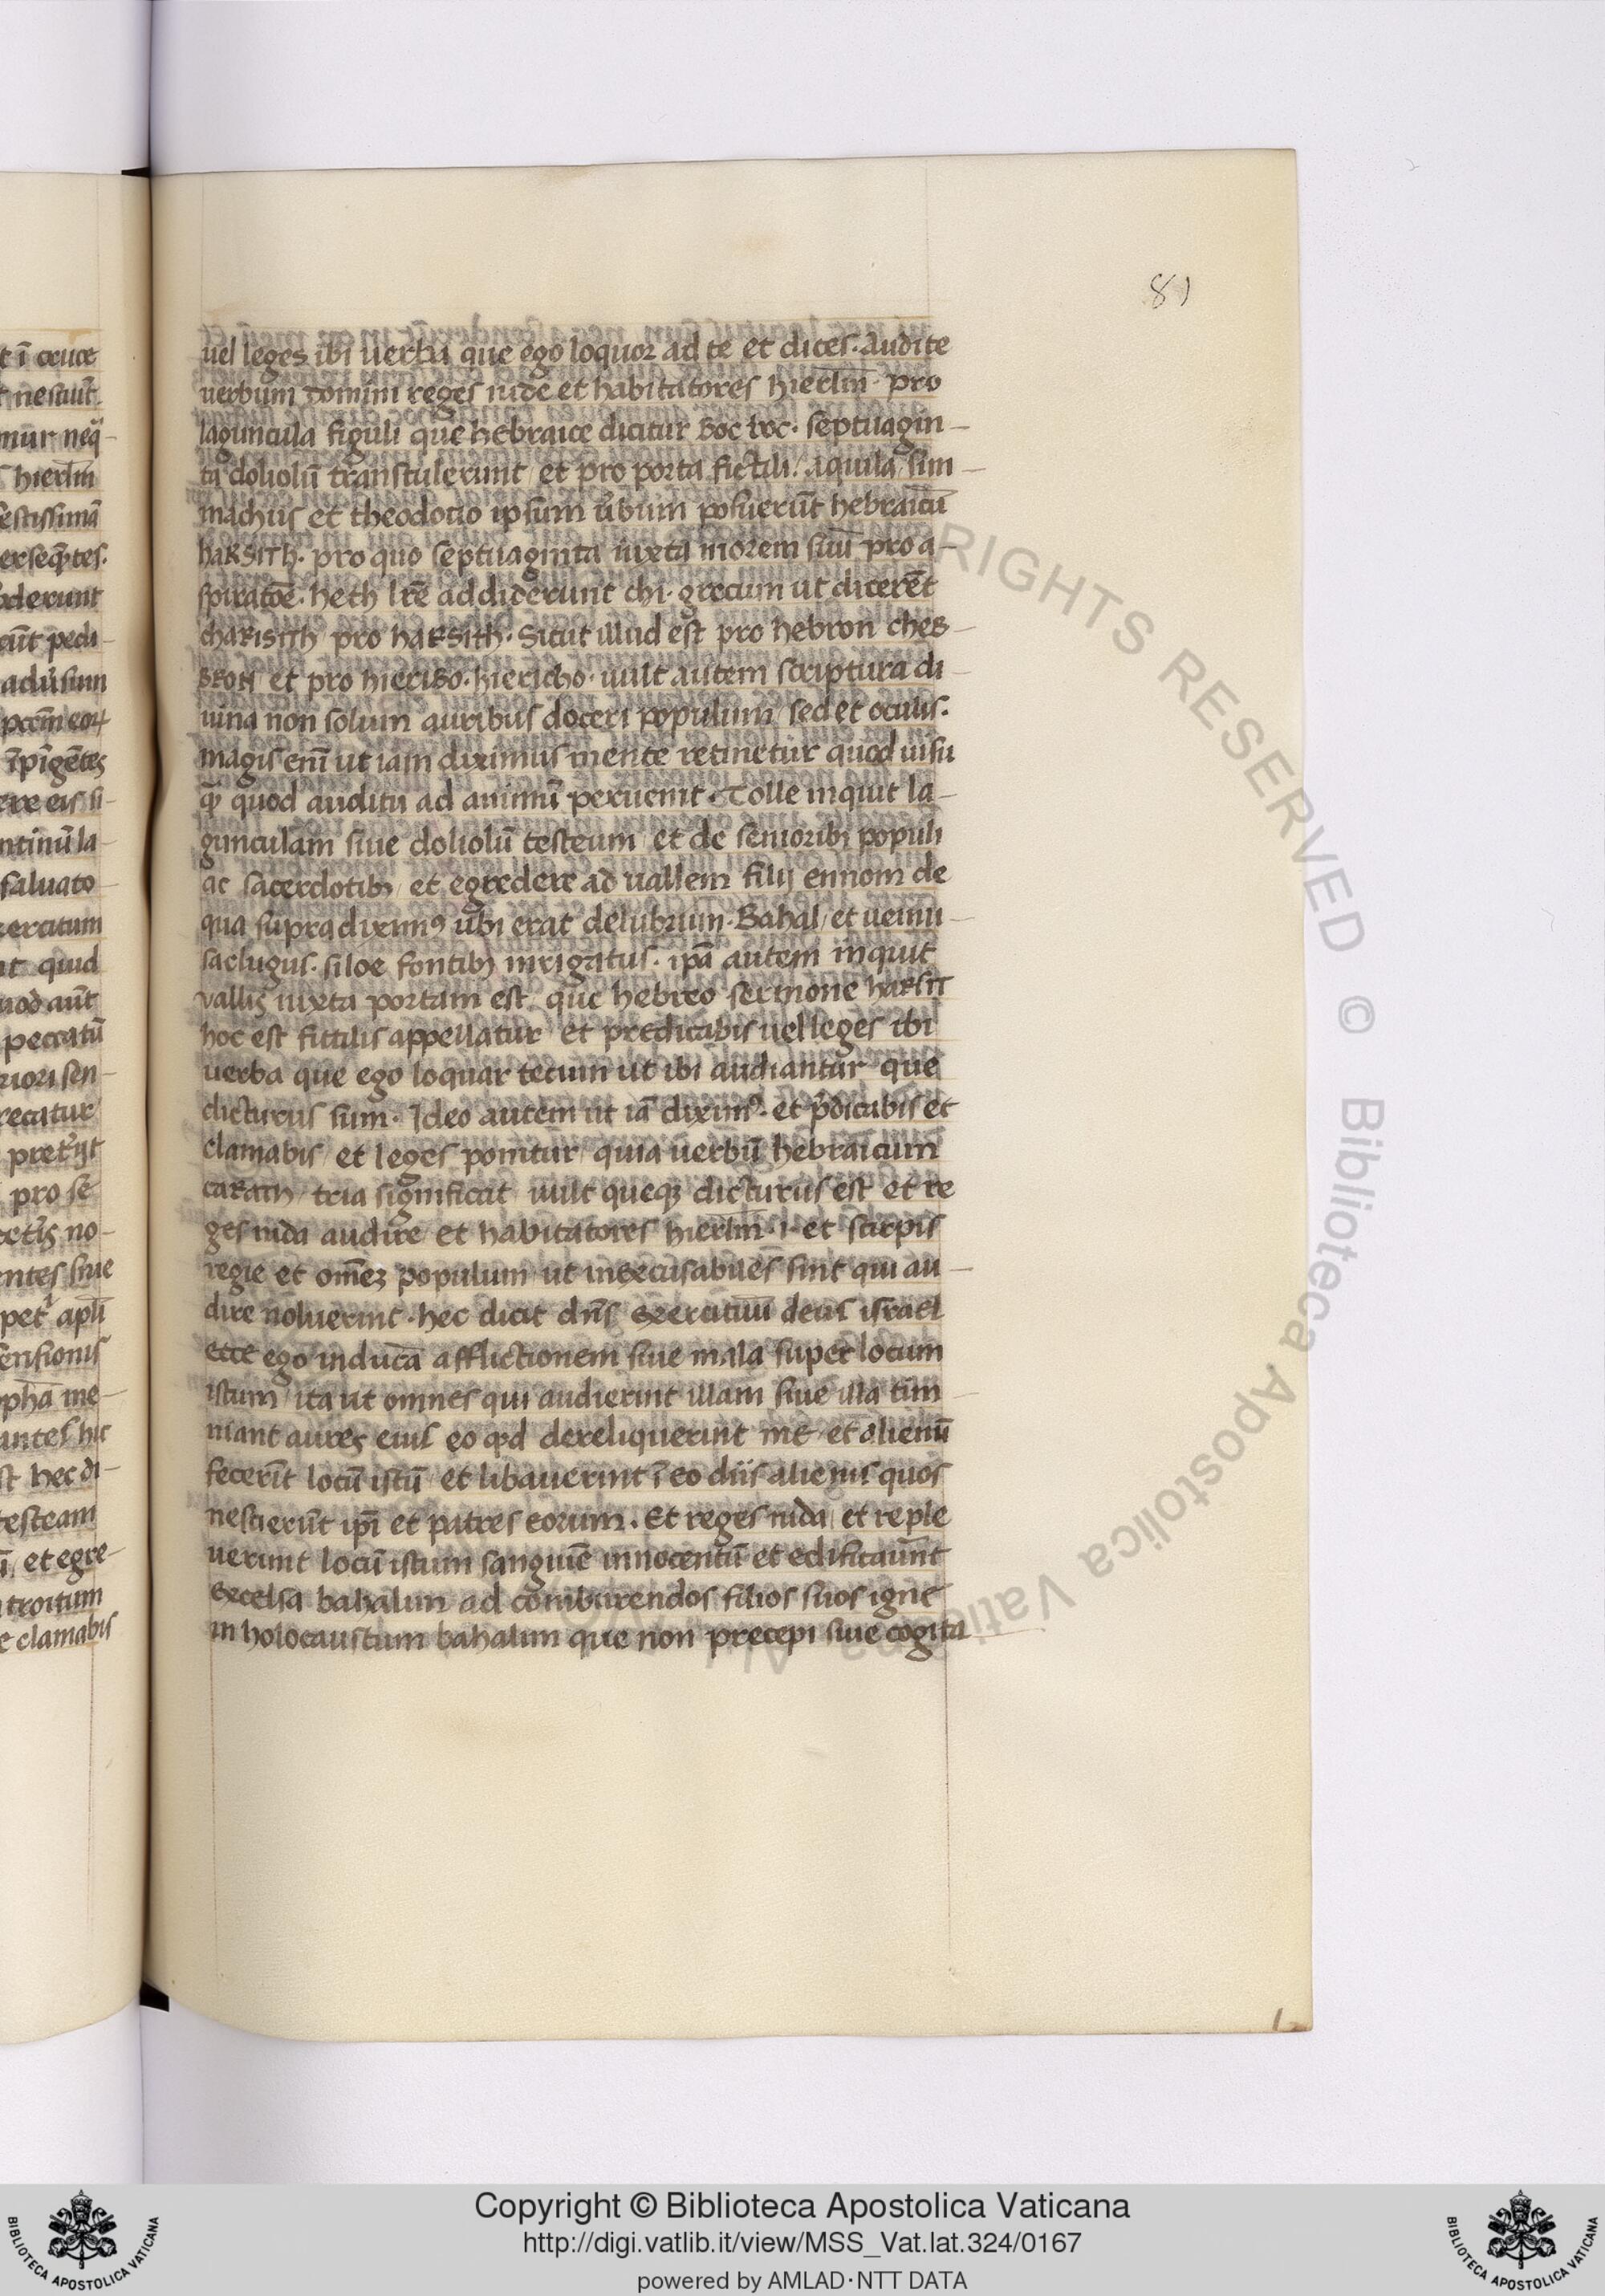 81
t ī cruce
nesciūt
mur neq̄
hierlm̄
festissimā
erseq̄ntes.
oderunt
cūt pedi
aduersum
pccm̄ eoꝝ
īpigētes
ere eis si
ntinū la
saluato
xercitum
ut quid
uod aūt
peccatū
riori sen
recatur
preterijt
pro se
no
entes siue
petr apl̄i
ensionis
opha me
antes hic
st hec di
testeam
et egre
troitum
e clamabis
uel leges ibi uerba que ego loquor ad te et dices. audite
uerbum domini reges iude et habitatores hierlm̄. pro
laguncula figuli que hebraice dicitur Boc boc. septuagin
ta doliolū transtulerunt et pro porta fictili. aquila sim
machus et theodotio ipsum ūbum posuerūt hebraicū
haRSITH. pro quo septuaginta iuxta morem suū pro a
spiratōe. heth lr̄e addiderunt chi. grecum ut dicerēt
chaRISITH pro haRSITH. Sicut illud est pro hebron cheB
BRON et pro hieriBo. hiericho. uult autem scriptura di
uina non solum auribus doceri populum sed et oculis.
magis enī ut iam diximus mente retinetur quod uisu
q̄ quod auditu ad animū peruenit. Tolle inquit la
gunculam siue doliolū testeum et de senioribꝫ populi
ac sacerdotibꝫ et egredere ad uallem filij ennom de
qua supra diximꝰ ubi erat delubrum. Bahal et nemu
saclugus. siloe fontibꝫ inrigatus. ipā autem inquit
vallis iuxta portam est. que hebreo sermone haRSIT
hoc est fictilis appellatur et predicabis uel leges ibi
uerba que ego loquar tecum ut ibi audiantur que
dicturus sum. Ideo autem ut iā diximꝰ. et p̄dicabis et
clamabis et leges ponitur quia uerbū hebraicum
caRath tria significat uult queqꝫ dicturus est et re
ges iuda audire et habitatores hierlm̄. i. et stirpis
regie et om̄eꝫ populum ut inexcusabiles sint qui au
dire noluerint. hec dicit dn̄s exercituū deus israel
ecce ego inducā afflictionem siue mala super locum
istum ita ut omnes qui audierint illam siue illa tin
niant aures eius eo qd̄ dereliquerint me et alienū
fecerīt locū istū et libauerint ī eo diis alienis quos
nescierūt ipī et patres eorum. Et reges iuda et reple
uerunt locū istum sanguīe innocentū et edificauūnt
excelsa bahalim ad comburendos filios suos igne
in holocaustum bahalim que non precepi siue cogita
RIGHTS RESERVED © Biblioteca Apostolica Vaticana
Copyright © Biblioteca Apostolica Vaticana
http://digi.vatlib.it/view/MSS_Vat.lat.324/0167
powered by AMLAD·NTT DATA
BIBLIOTECA APOSTOLICA VATICANA
BIBLIOTECA APOSTOLICA VATICANA